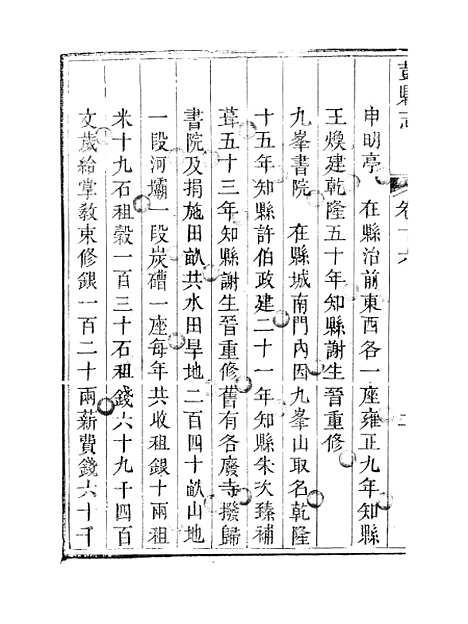 彭縣志
卷十六
申明亭 在縣治前東西各一座雍正九年知縣
王煥建乾隆五十年知縣謝生晉重修
九峯書院 在縣城南門內因九峯山取名乾隆
十五年知縣許伯政建二十一年知縣朱次臻補
葺五十三年知縣謝生晉重修舊有各廢寺撥歸
書院及捐施田畝共水田旱地二百四十畝山地
一段河壩一段炭磄一座每年共收租銀十兩租
米十九石租穀一百三十石租錢六十九千四百
文歲給掌教束修銀一百二十兩薪費錢六十千